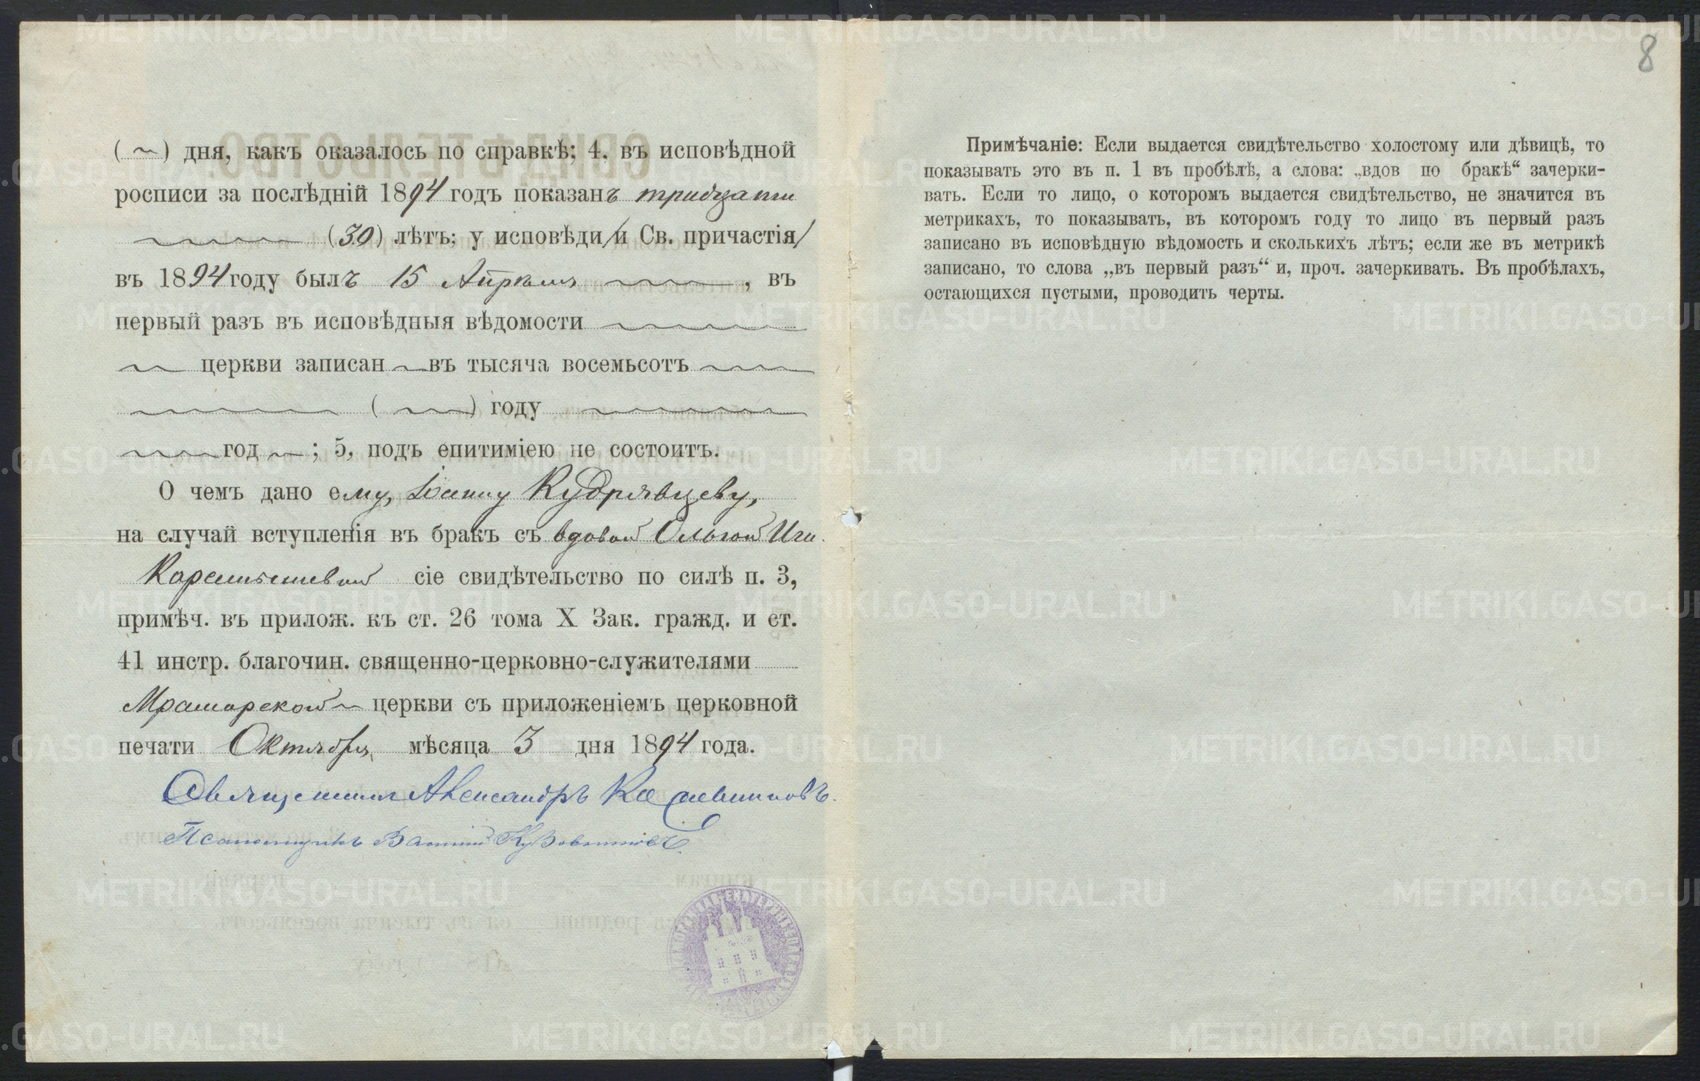 8
( ~ ) дня, какъ оказалось по справкѣ; 4. въ исповѣдной
росписи за послѣдній 1894 годъ показанъ тридцати
(30) лѣтъ; у исповѣди /и Св. причастія/
въ 1894 году былъ 15 Апрѣля , въ
первый разъ въ исповѣдныя вѣдомости
церкви записан въ тысяча восемьсотъ
( ) году
год ; 5, подъ епитиміею не состоитъ.
О чемъ дано ему, Іоанну Кудрявцеву,
на случай вступленія въ бракъ съ вдовой Ольгой
сіе свидѣтельство по силѣ п. 3,
примѣч. въ прилож. къ ст. 26 тома X Зак. гражд. и ст.
41 инстр. благочин. священно-церковно-служителями
Мраморской церкви съ приложеніемъ церковной
печати Октября мѣсяца 3 дня 1894 года.
Священникъ Александръ
Псаломщикъ
Примѣчаніе: Если выдается свидѣтельство холостому или дѣвицѣ, то
показывать это въ п. 1 въ пробѣлѣ, а слова: „вдов по бракѣ“ зачерки-
вать. Если то лицо, о которомъ выдается свидѣтельство, не значится въ
метрикахъ, то показывать, въ которомъ году то лицо въ первый разъ
записано въ исповѣдную вѣдомость и сколькихъ лѣтъ; если же въ метрикѣ
записано, то слова „въ первый разъ“ и, проч. зачеркивать. Въ пробѣлахъ,
остающихся пустыми, проводить черты.
METRIKI.GASO-URAL.RU